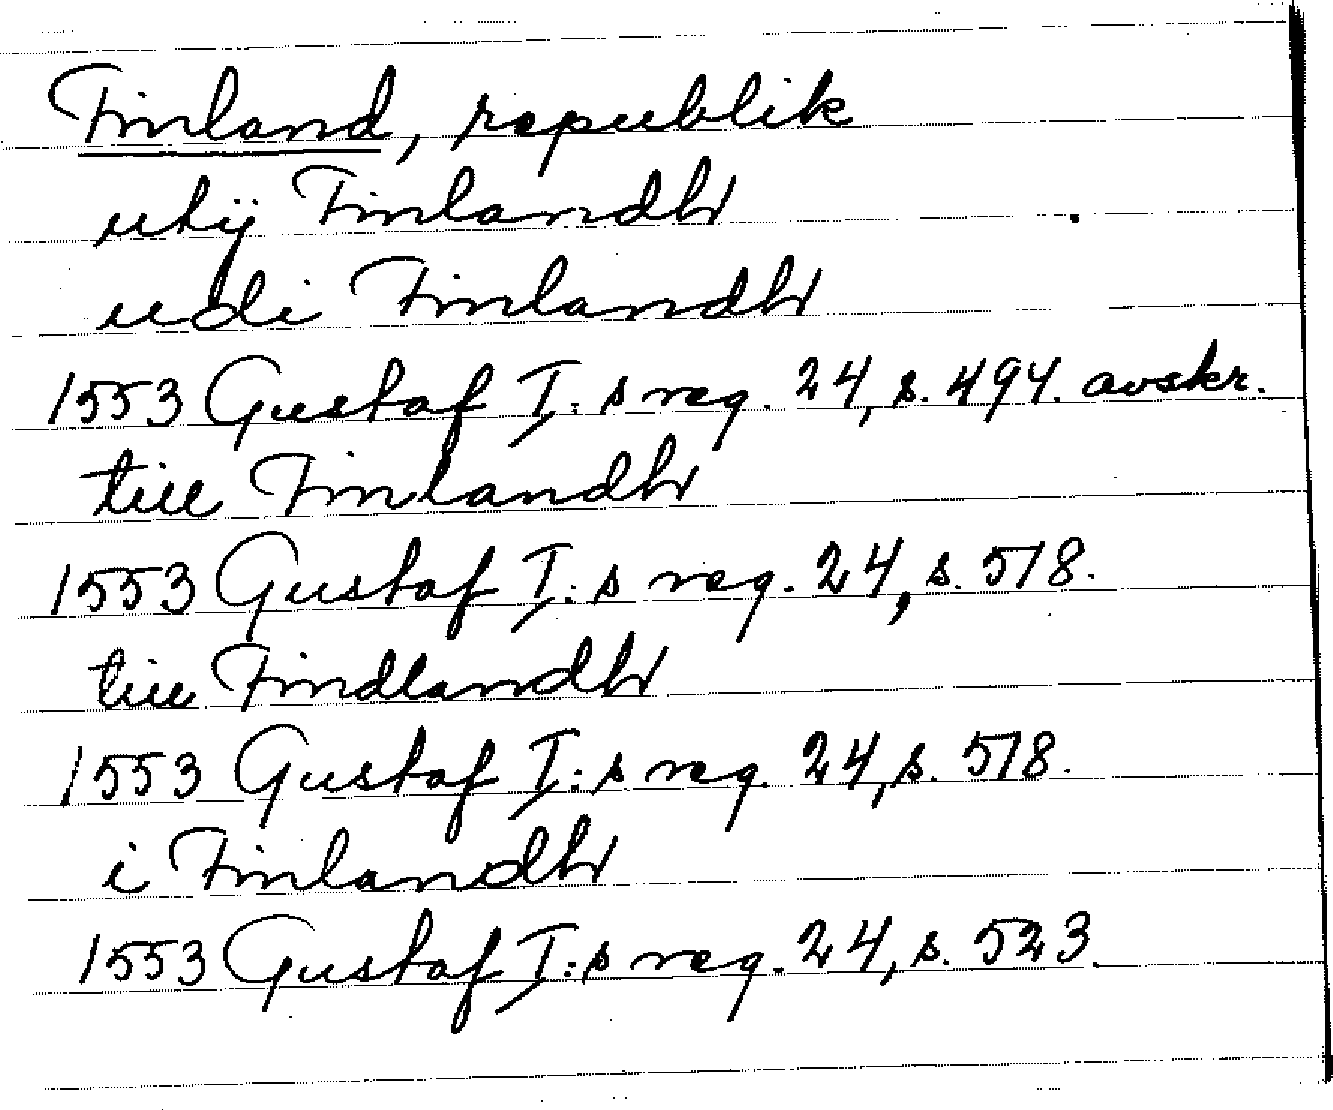 Finland, republik
utij Finlandh
udi Finlandh
1553 Gustaf I:s reg. 24, s. 494. avskr.
till Finlandh
1553 Gustaf I:s reg. 24, s. 518.
till Findlandh
1553 Gustaf I:s reg. 24, s. 518.
i Finlandh
1553 Gustaf I:s reg. 24, s. 523.